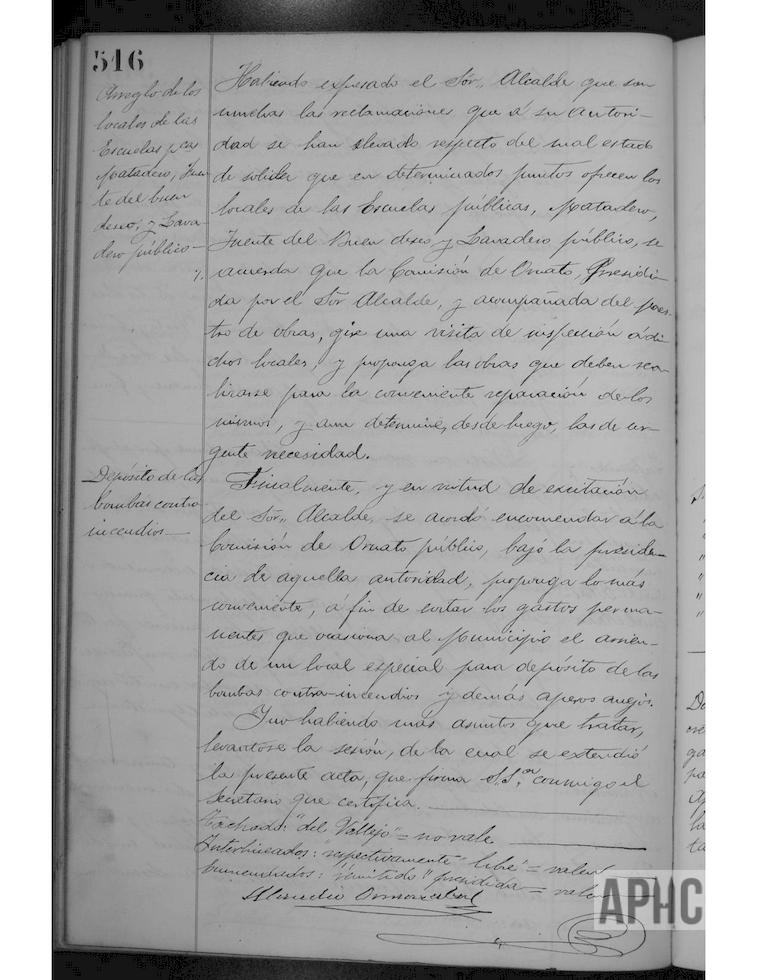 516
Arreglo de los
locales de las
Escuelas pcas
Matadero, Fuen
te del buen
deseo, y Lava-
dero público—
Habiendo expresado el Sór,, Alcalde que son
muchas las reclamaciones, que á su autori-
dad se han elevado respecto del mal estado
de solidez que en determinados puntos ofrecen los
locales de las Escuelas públicas, Matadero,
Fuente del Buen deseo, y Lavadero público, se
acuerda que la Comisión de Ornato, Presidi-
da por el Sór Alcalde, y acompañada del maes-
tro de obras, gire una visita de inspección á di
chos locales, y proponga las obras que deben rea-
lizarse para la conveniente reparación de los
mismos, y aun determine, desde luego, las de ur-
gente necesidad.
Depósito de las
bombas contra
incendios—
Finalmente, y en virtud de excitación
del Sór,, Alcalde, se acordó encomendar á la
Comisión de Ornato público, bajo la presiden-
cia de aquella autoridad, proponga lo más
conveniente, á fin de evitar los gastos perma-
nentes que ocasiona al Municipio el arrien-
do de un local especial para depósito de las
bombas contra-incendios y demás aperos anejos.
Y no habiendo más asuntos que tratar,
levantóse la sesión, de la cual se extendió
la presente acta, que firma S.Sª. conmigo el
Secretario que certifica.
Tachado: "del Vallejo" = no vale.
Interlineados: "respectivamente" libre = valen
Enmendados: "remitido" presidida = valen
APHC